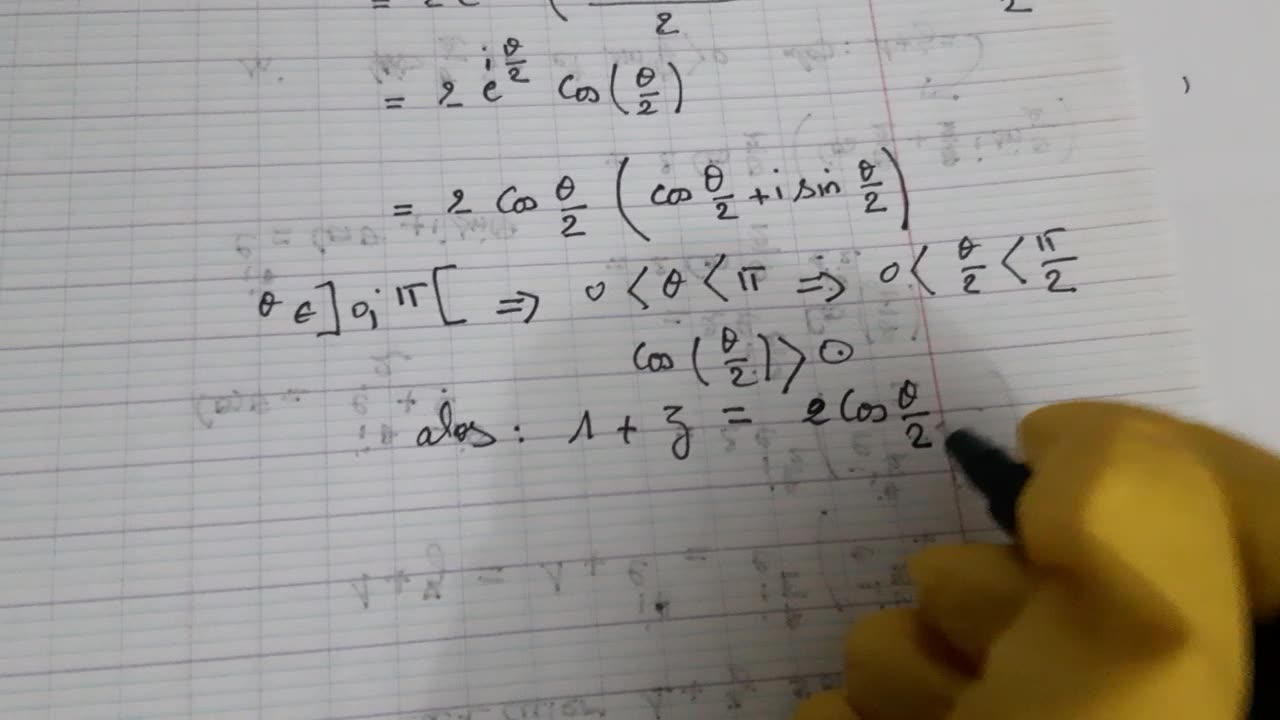 = 2 e^{i θ/2} cos(θ/2)
= 2 cos θ/2 (cos θ/2 + i sin θ/2)
θ ∈ ]0; π[ ⇒ 0 < θ < π ⇒ 0 < θ/2 < π/2
cos(θ/2) > 0
alos : 1 + z = 2 cos θ/2